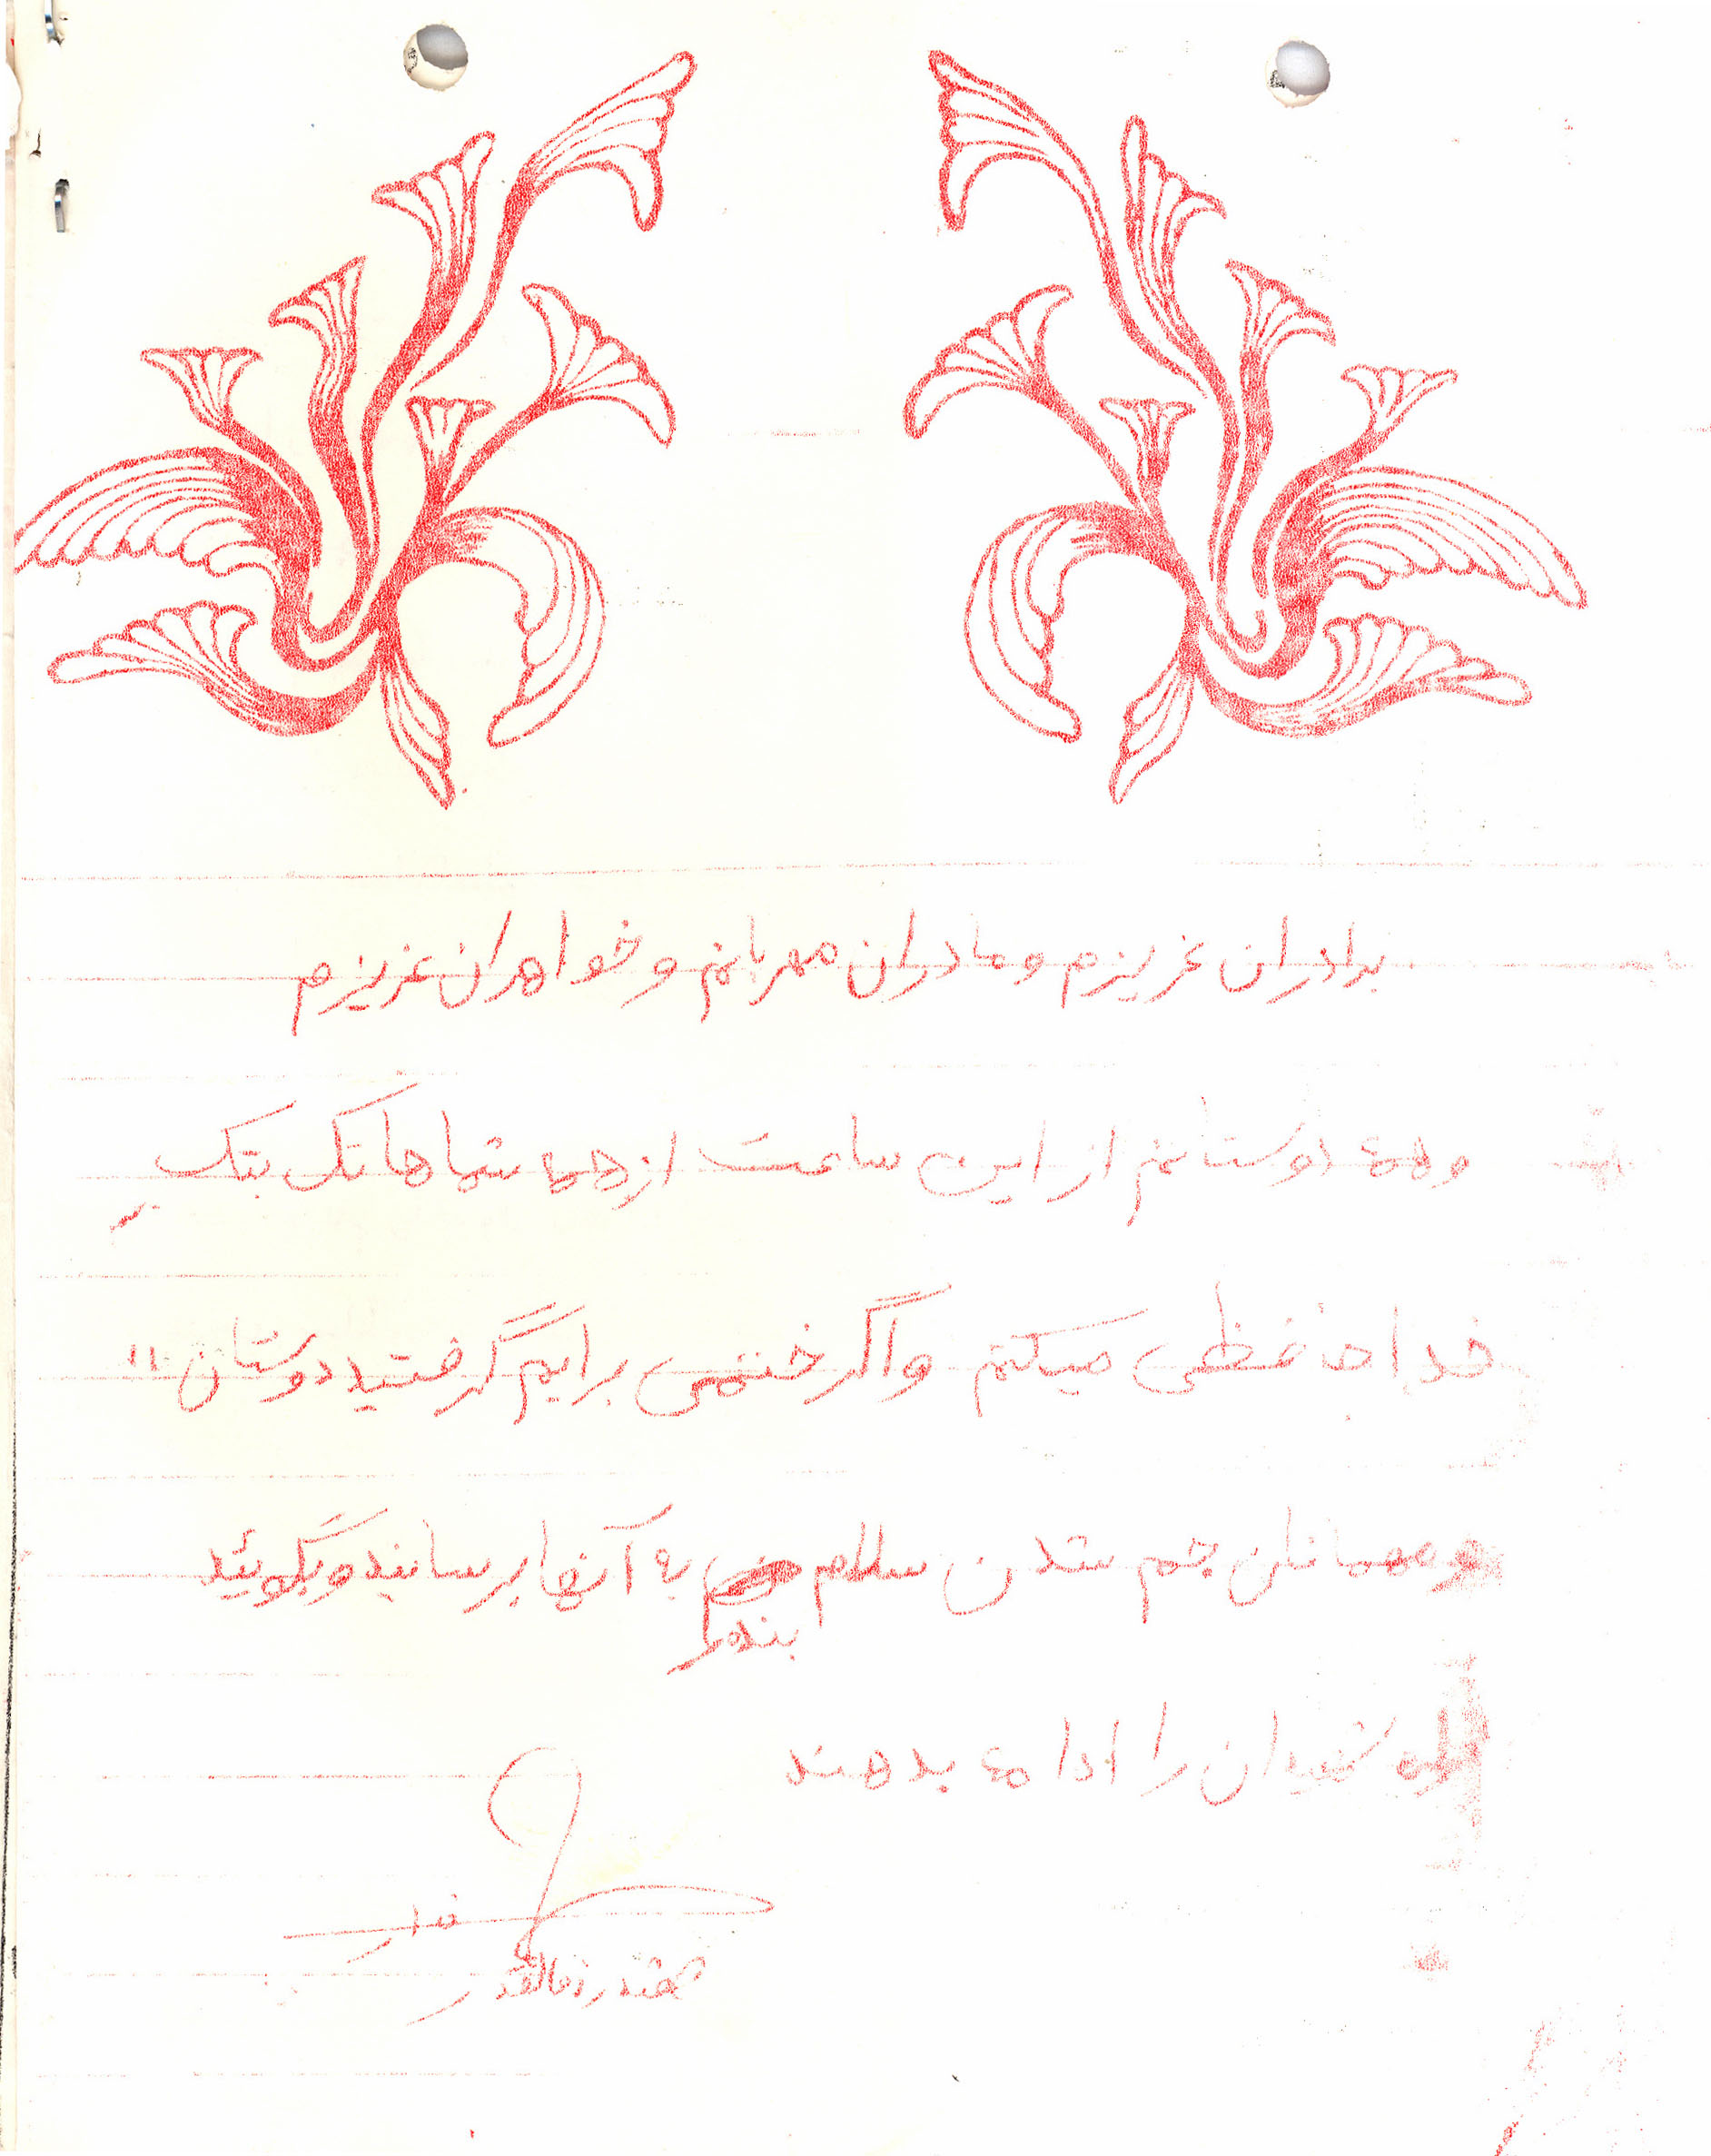 برادران عزیزم و مادران مهربانم و خواهران عزیزم
و همه دوستانم از این ساعت از همه شماها تک بتک
خداحافظی میکنم و اگر ختمی برایم گرفتید دوستان
و مهمانان جمع شدن سلام به آنها برسانید و بگوئید
بنده را
راه شهیدان را ادامه بدهند